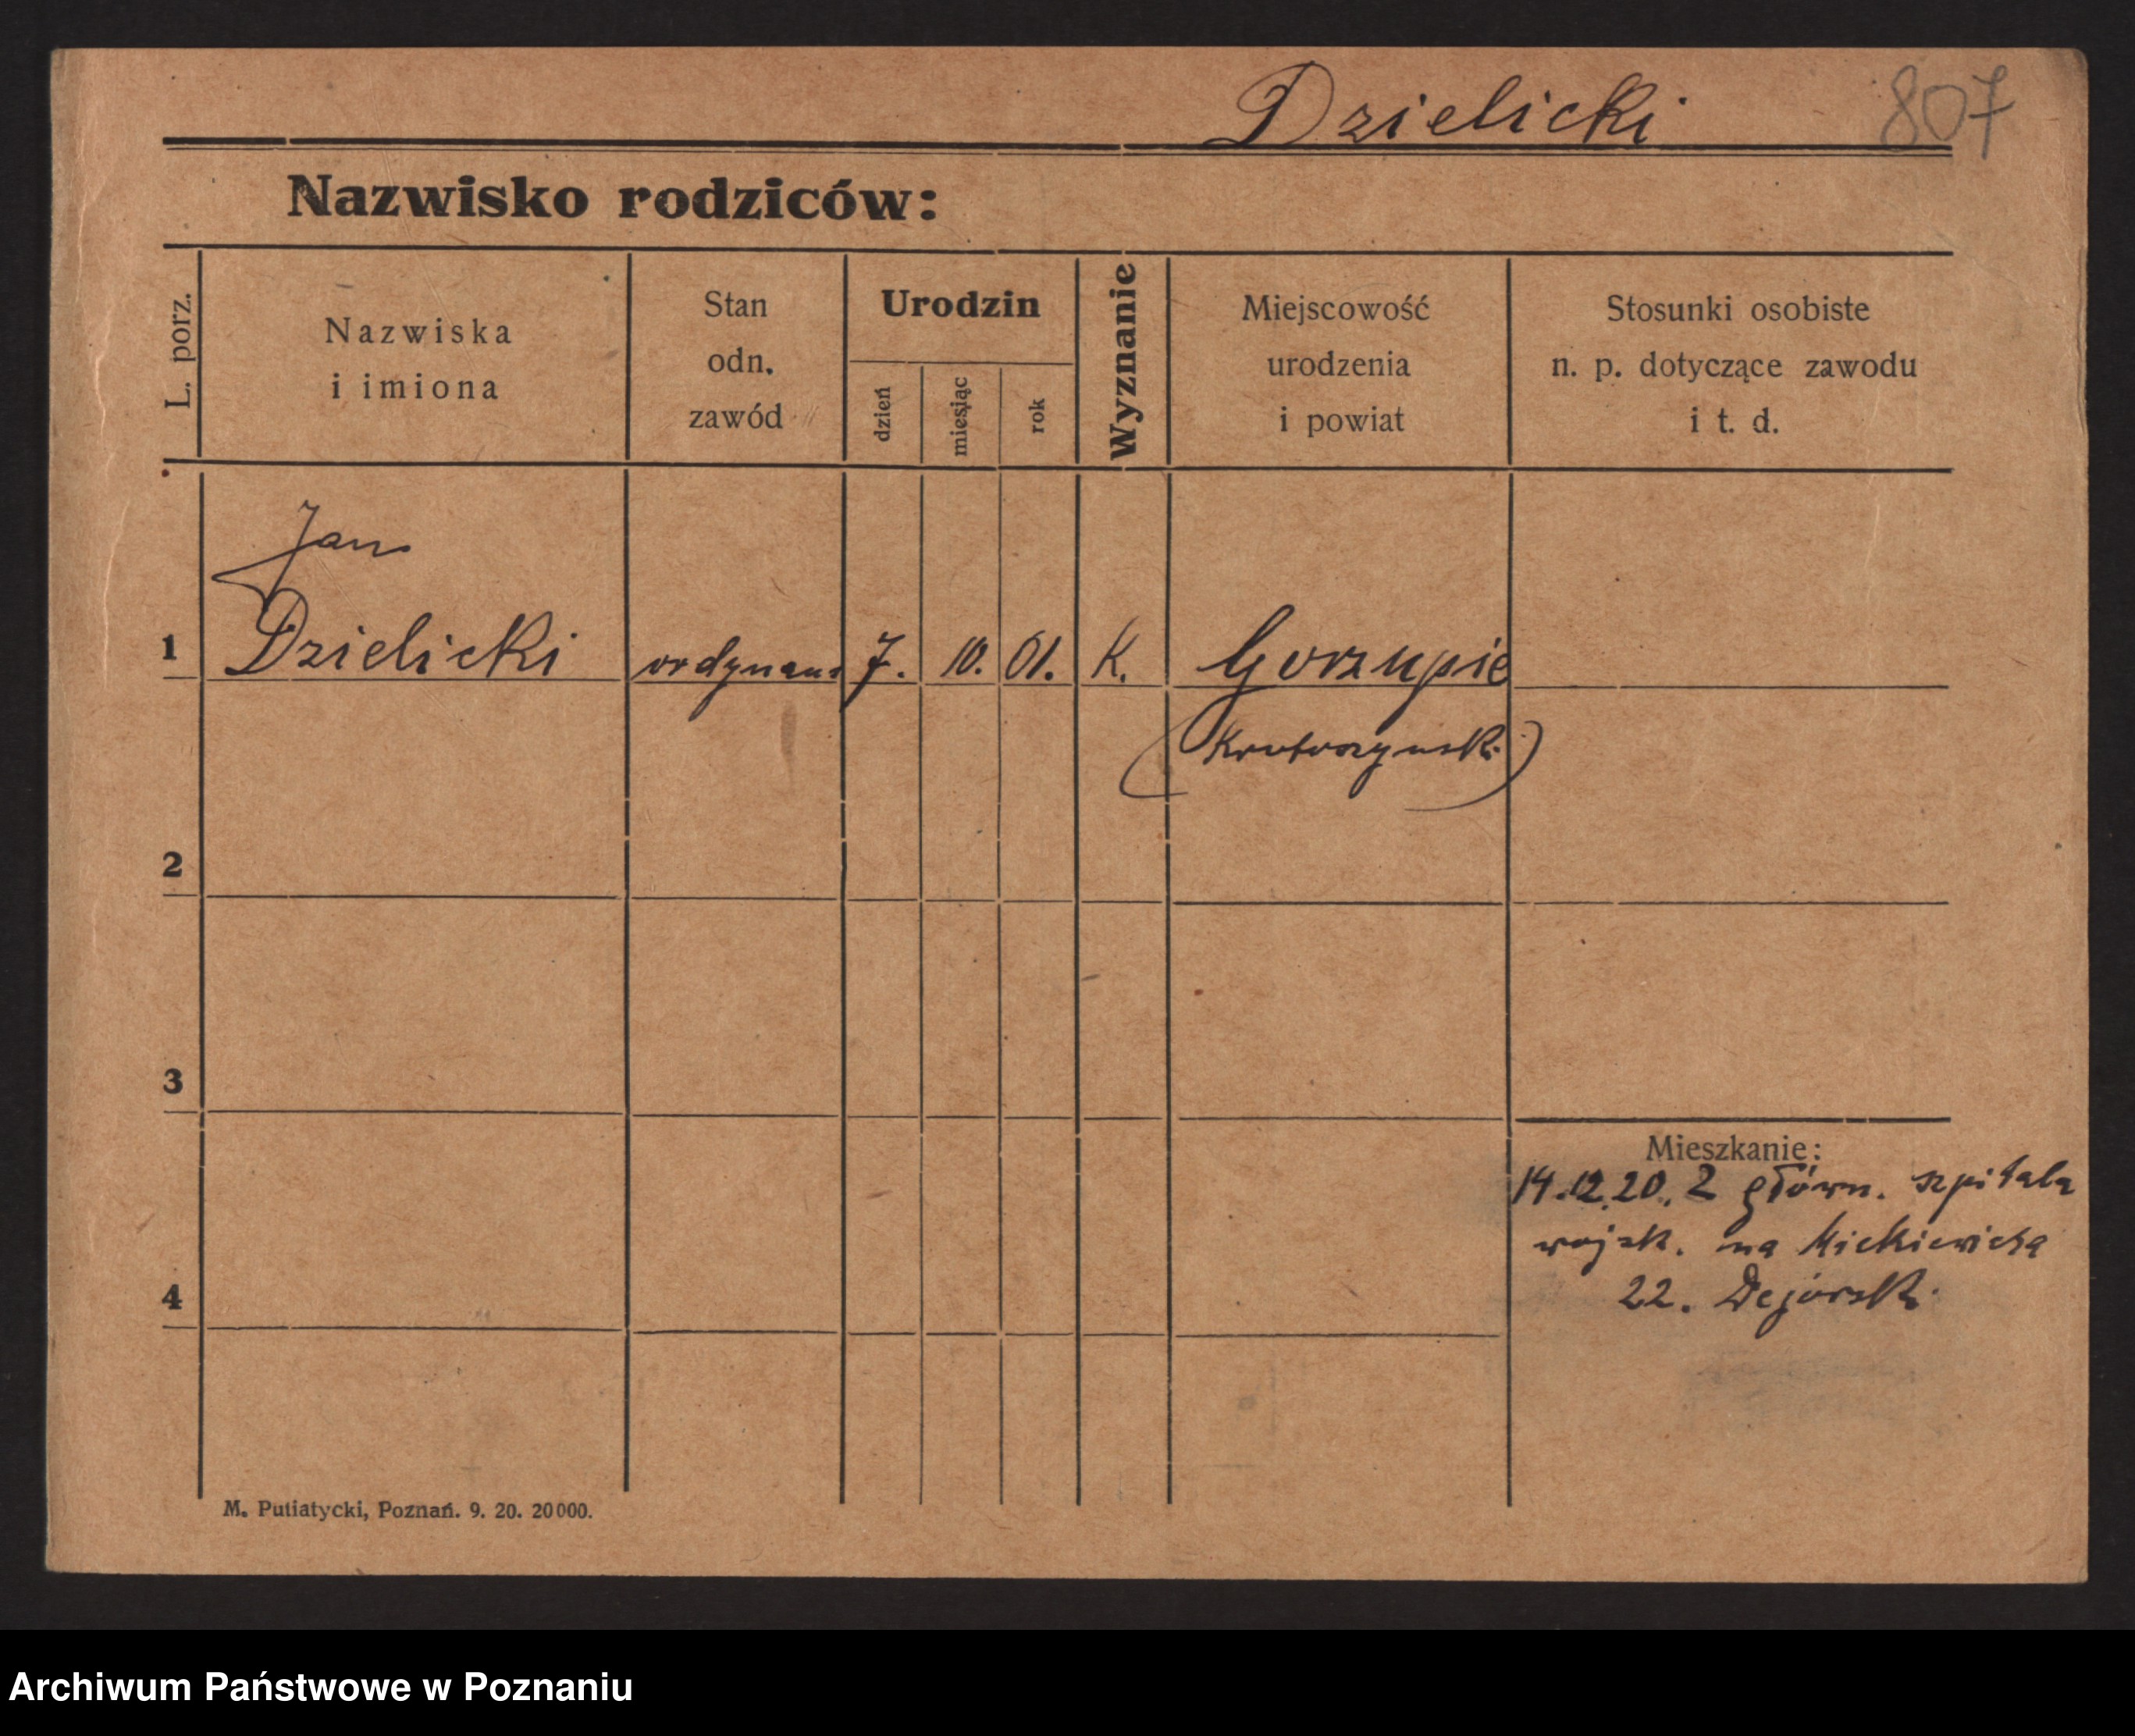 Dzielicki 807
Nazwisko rodziców:
L. porz.
Nazwiska
i imiona
Stan
odn.
zawód
Urodzin
dzień
miesiąc
rok
Wyznanie
Miejscowość
urodzenia
i powiat
Stosunki osobiste
n. p. dotyczące zawodu
i t. d.
Jan
1 Dzielicki ordynans 7. 10. 01. K. Gorzupie
(Krotoszynsk.)
2
3
Mieszkanie:
14.12.20. Z główn. szpitala
wojsk. na Mickiewicza
4
22. Dejorsk.
M. Putiatycki, Poznań. 9. 20. 20000.
Archiwum Państwowe w Poznaniu